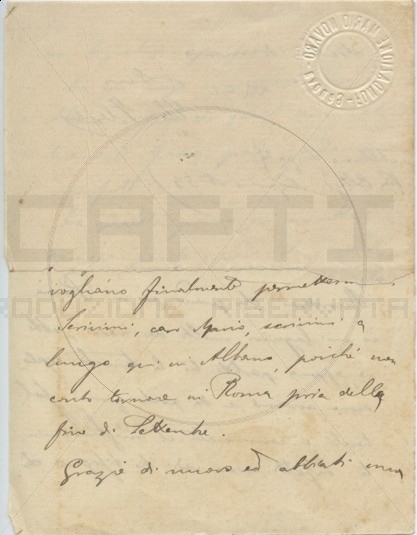 FONDAZIONE MARIO NOVARO
CAPTI
RIPRODUZIONE RISERVATA
vogliano finalmente permettermi
Scrivimi, caro Mario, scrivimi a
lungo qui in Albano, poiché non
conto tornare in Roma pria della
fine di Settembre.
Grazie di nuovo ed abbiati una